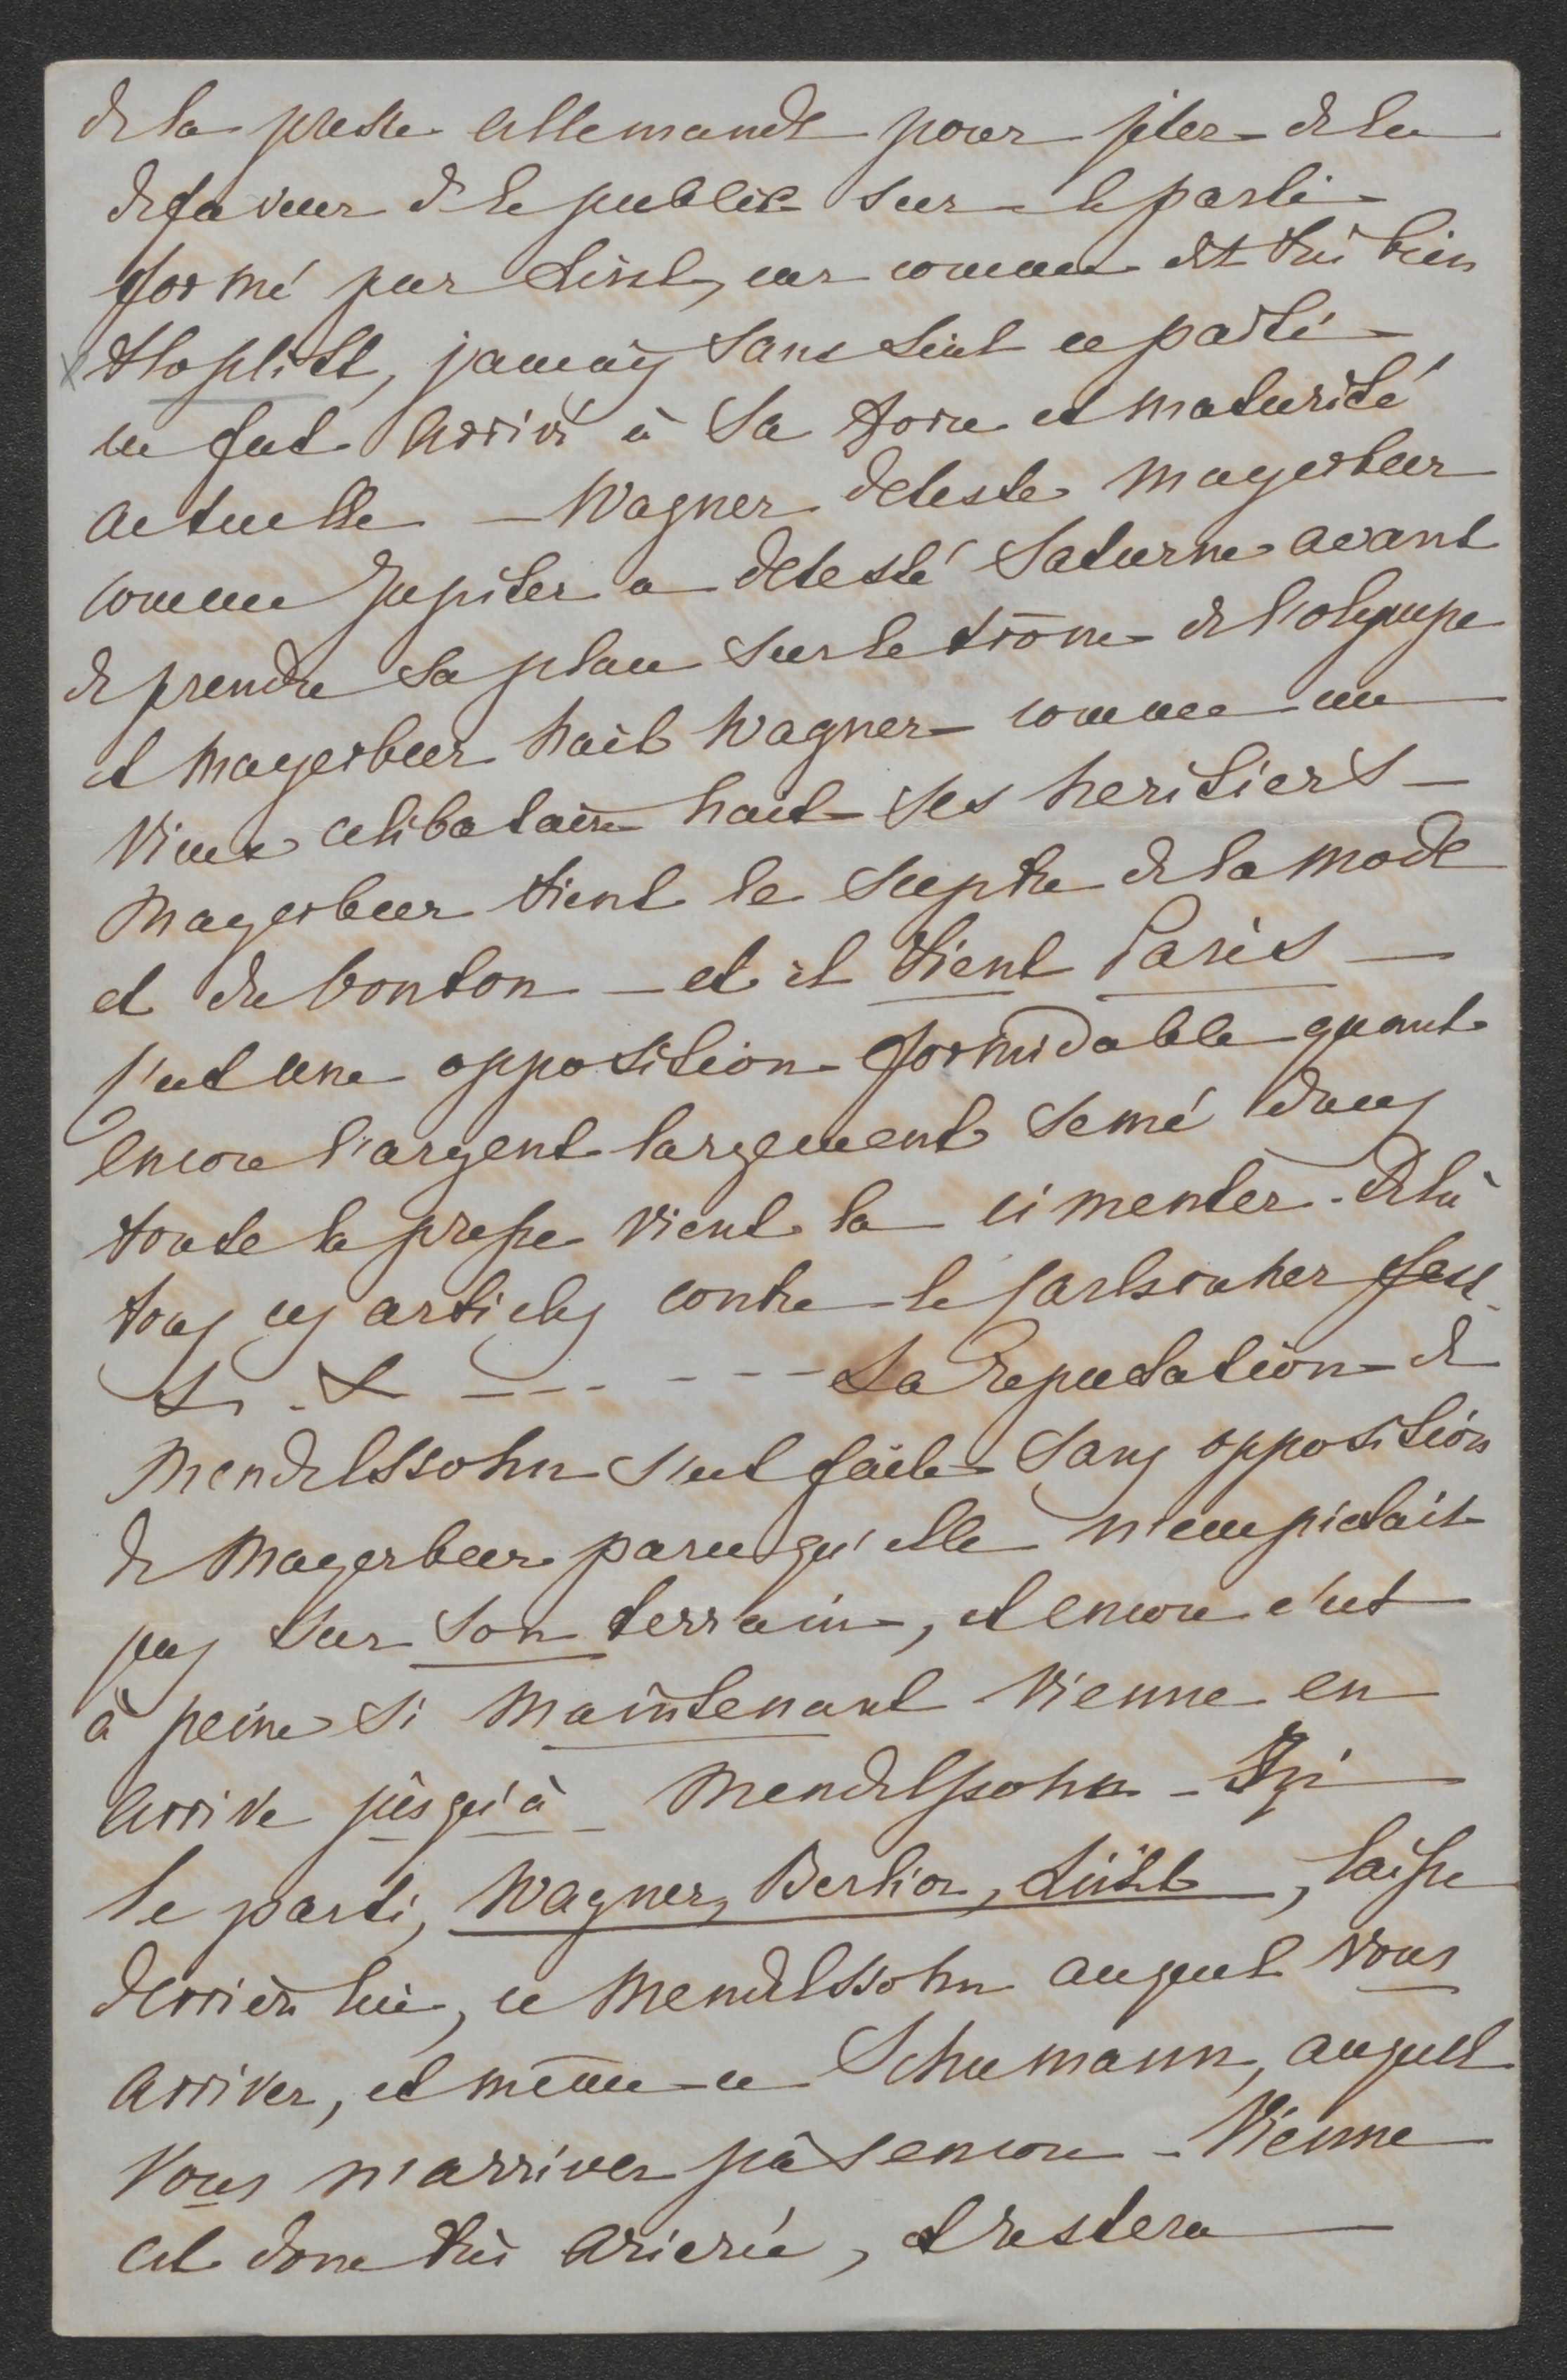 de la presse allemande pour jeter de la
defaveur de le public sur le parti
formé par Liszt, car comme dit très bien
Hoplitt, jamais sans Liszt ce parti
ne fut arrivé à sa force et maturité
actuelle — Wagner deteste Mayerbeer
comme Jupiter a detesté Saturne avant
de prendre sa place sur le trône de l'olympe
et Mayerbeer hait Wagner comme un
vieux celibataire hait ses heritiers —
Mayerbeer tient le sceptre de la mode
et du bonton — et il tient Paris —
c'est une opposition formidable quant
encore l'argent largement semé dans
toute la presse vient la cimenter. De là
tous ces articles contre le Carlsruher fest
La reputation de
Mendelssohn s'est faite sans opposition
de Mayerbeer parcequ'elle n'empietait
pas sur son terrain, et encore c'est
à peine si maintenant Vienne en
arrive jusqu'à Mendelssohn —
le parti, Wagner, Berlioz, Liszt, laisse
derrière lui, ce Mendelssohn auquel vous
arrivez, et même ce Schumann, auquel
vous n'arrivez pas encore — Vienne
est donc très arierée, et restera